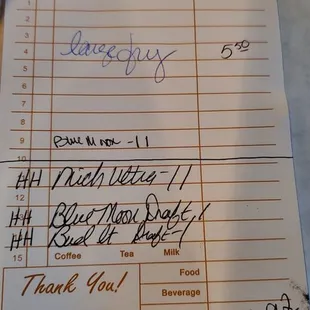 3
4
large fry 5 50
5
6
7
8
9 Blue Moon - 11
10
HH Mich Ultra - 11
12
HH Blue Moon Draft, 1
HH Bud lt Draft - 1
15
Coffee Tea Milk
Thank You! Food
Beverage